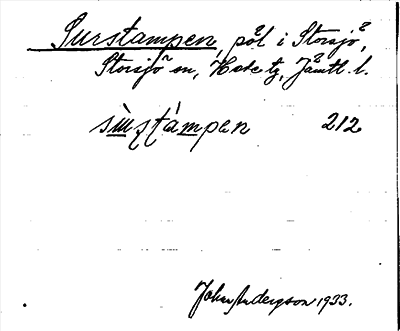 Surstampen, pöl i Storsjö,
Storsjö sn, Hede tg, Jämtl. l.
sùʂtámpen 212
Johan Anderzson 1933.